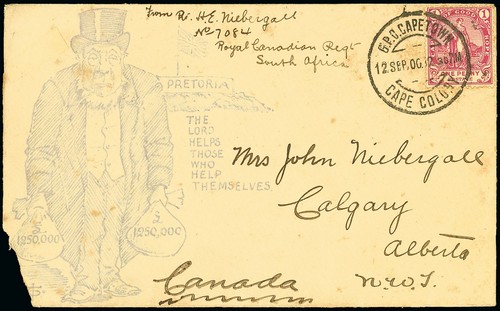 From Pt. H.E. Niebergall
No 7084
Royal Canadian Regt
South Africa
G.P.O. CAPETOWN
CAPE COLONY
1
1
ONE PENNY
PRETORIA
THE
LORD
HELPS
THOSE
WHO
HELP
THEMSELVES
£
1250,000
£
1250,000
Mrs John Niebergall
Calgary
Alberta
N.W.T.
Canada